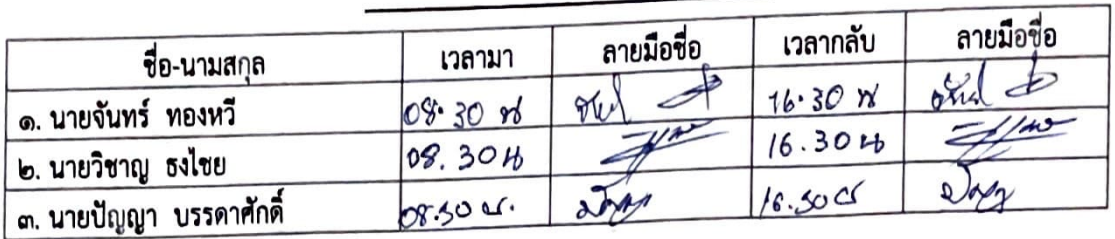 ชื่อ-นามสกุล เวลามา ลายมือชื่อ เวลากลับ ลายมือชื่อ
๑. นายจันทร์ ทองหวี 08.30 น 16.30 น
๒. นายวิชาญ ธงไชย 08.30 น 16.30 น
๓. นายปัญญา บรรดาศักดิ์ 08.30 น. ปัญญา 16.30 น ปัญญา